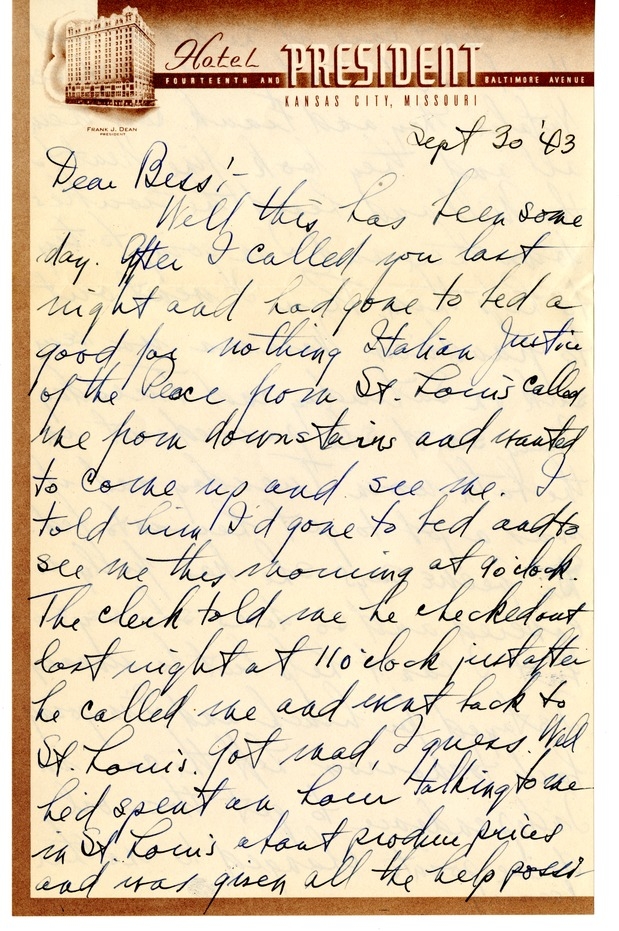 Hotel PRESIDENT
FOURTEENTH AND BALTIMORE AVENUE
KANSAS CITY, MISSOURI
FRANK J. DEAN
PRESIDENT
Sept 30 '43
Dear Bess:-
Well this has been some
day. After I called you last
night and had gone to bed a
good for nothing Italian Justice
of the Peace from St. Louis called
me from downstairs and wanted
to come up and see me. I
told him I'd gone to bed and to
see me this morning at 9 o'clock.
The clerk told me he checked out
last night at 11 o'clock just after
he called me and went back to
St. Louis. Got mad, I guess. Well
he'd spent an hour talking to me
in St. Louis about produce prices
and was given all the help possi-